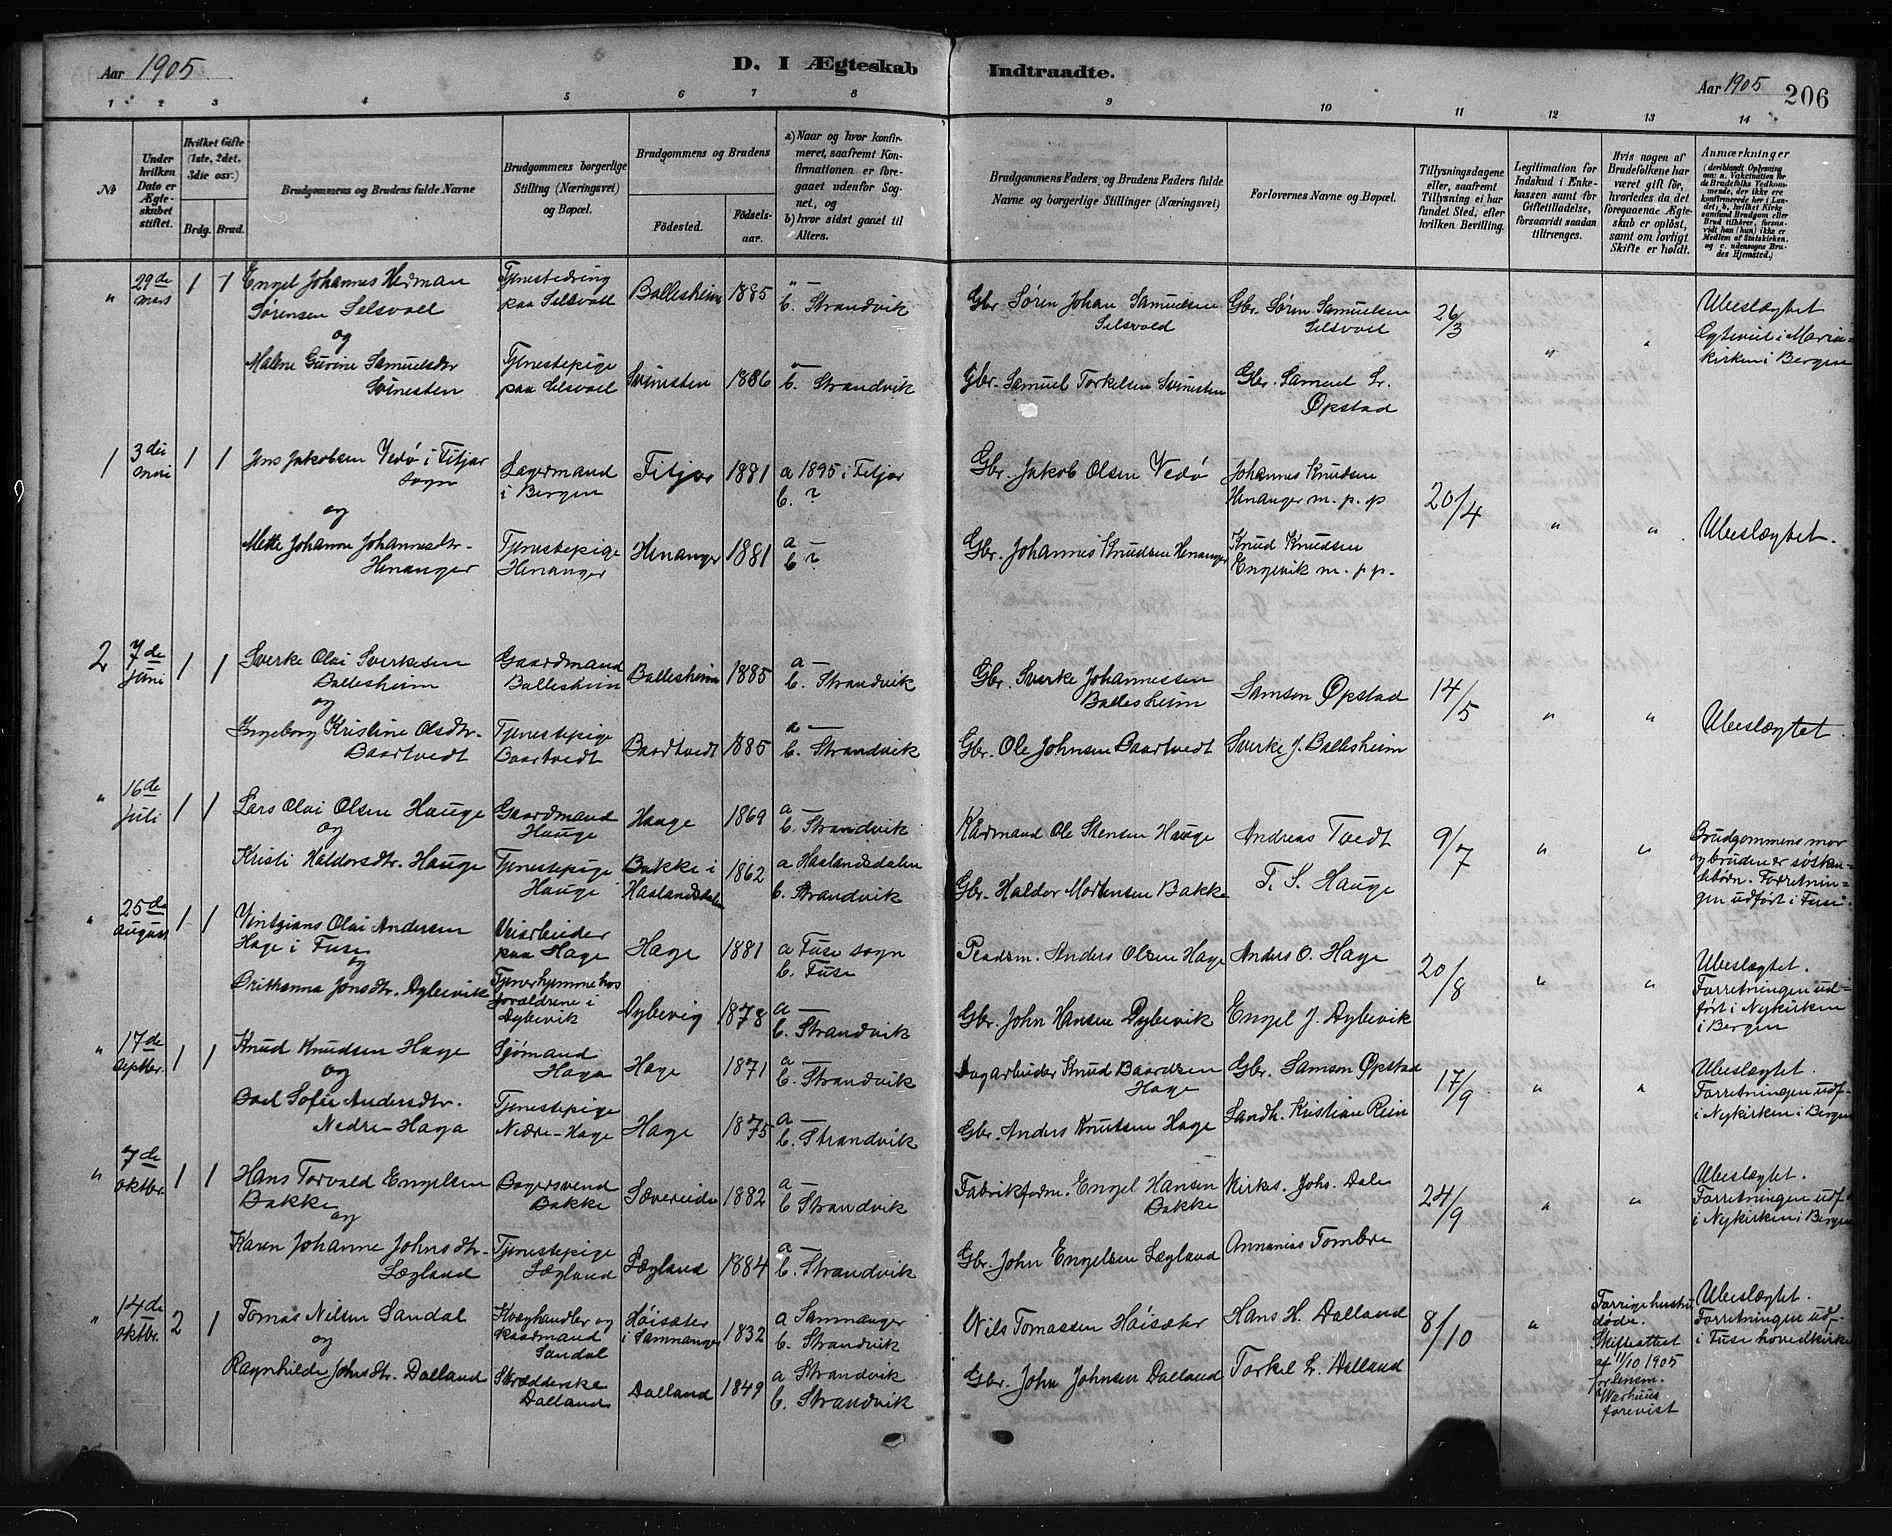 Aar 1905
D. I Ægteskab Indtraadte.
Aar 1905 206
1 2 3 4 5 6 7 8 9 10 11 12 13 14
№
Under hvilken Dato er Ægteskabet stiftet.
Hvilket Gifte (1ste, 2det, 3die osv.)
Brdg. Brud.
Brudgommens og Brudens fulde Navne
Brudgommens borgerlige Stilling (Næringsvei) og Bopæl.
Brudgommens og Brudens
Fødested.
Fødselsaar.
a) Naar og hvor konfirmeret, saafremt Konfirmationen er foregaaet udenfor Sognet, og
b) hvor sidst gaaet til Alters.
Brudgommens Faders, og Brudens Faders fulde Navne og borgerlige Stillinger (Næringsvei)
Forlovernes Navne og Bopæl.
Tillysningsdagene eller, saafremt Tillysning ei har fundet Sted, efter hvilken Bevilling.
Legitimation for Indskud i Enkekassen samt for Giftetilladelse, forsaavidt saadan tiltrænges.
Hvis nogen af Brudefolkene har været gift før, hvorledes da det foregaaende Ægteskab er opløst, samt om lovligt Skifte er holdt.
Anmærkninger
„ 29de mars 1 1 Engel Johannes Herman Sørensen Selsvoll
Tjenestedreng paa Selsvoll Ballesheim 1885 " b. Strandvik
Gbr. Søren Johan Samuelsen Selsvold
Gbr. Søren Samuelsen Selsvoll
26/3 „ „ Ubeslægtet
Egteviet i Mariakirken i Bergen
og
Malene Gurine Samuelsdtr Svinesten
Tjenestepige paa Selsvoll Svinesten 1886 a b. Strandvik
Gbr. Samuel Torkelsen Svinesten
Gbr. Samuel L. Øpstad
1 3die mai 1 1 Jens Jakobsen Vedø i Fitjar sogn
Lagermand i Bergen Fitjar 1881 a 1895 i Fitjar b. ?
Gbr. Jakob Olsen Vedø
Johannes Knudsen Henanger m. p. p
20/4 „ „ Ubeslægtet.
og
Mette Johanne Johannesdtr. Henanger
Tjenestepige Henanger Henanger 1881 a – b ?
Gbr. Johannes Knudsen Henanger
Knud Knudsen Engevik m. p p.
2 7de Juni 1 1 Sverke Olai Sverkesen Ballesheim
Gaardmand Ballesheim Ballesheim 1885 a – b. Strandvik
Gbr. Sverke Johannessen Ballesheim
Samson Øpstad
14/5 „ „ Ubeslægtet.
og
Ingeborg Kristine Olsdtr. Baartvedt
Tjenestepige Baartvedt Baartvedt 1885 a – b. Strandvik
Gbr. Ole Johnsen Baartvedt Sverke J. Ballesheim
„ 16de juli 1 1 Lars Olai Olsen Hauge
Gaardmand Hauge Hauge 1869 a b. Strandvik
Kårmand Ole Stensen Hauge Andreas Tvedt
9/7 „ „ Brudgommens mor og bruden er søskenebørn. Forretningen udført i Fuse.
og
Kristi Haldorsdtr. Hauge
Tjenestepige Hauge Bakke i Haalandsdalen 1862 a Haalandsdalen b. Strandvik
Gbr. Haldor Mortensen Bakke T. S. Hauge
„ 25de august 1 1 Vintzians Olai Andersen Hage i Fuse
Veiarbeider paa Hage Hage 1881 a Fuse sogn b. Fuse
Pladsm. Anders Olsen Hage Anders O. Hage
20/8 „ „ Ubeslægtet. Forretningen udført i Nykirken i Bergen
og
Brithanna Jonsdtr. Dybevik
Tjener hjemme hos forældrene i Dybevik Dybevig 1878 a – b. Strandvik
Gbr. John Hansen Dybevik Engel J. Dybevik
„ 17de septbr. 1 1 Knud Knudsen Hage
Sjømand Haga Hage 1871 a b. – Strandvik
Dagarbeider Knud Baardsen Hage
Gbr. Samson Øpstad
17/9 „ „ Ubeslægtet. Forretningen udf. i Nykirken i Bergen
og
Boel Sofie Andersdtr. Nedre-Haga
Tjenestepige Nedre-Hage Hage 1875 a – b. Strandvik
Gbr. Anders Knutsen Hage Landh. Kristian Rein
„ 7de oktbr. 1 1 Hans Torvald Engelsen Bakke
Bagersvend Bakke Sævereide 1882 a – b Strandvik
Fabrikform. Engel Hansen Bakke
Kirkes. Johs. Dale
24/9 „ „ Ubeslægtet. Forretningen udf. i Nykirken i Bergen
og
Karen Johanne Johnsdtr. Lægland
Tjenestepige Lægland Lægland 1884 a – b. Strandvik
Gbr. John Engelsen Lægland Annanias Tombre
„ 14de oktbr. 2 1 Tomas Nilsen Sandal
Kvæghandler og gaardmand Sandal Høisæter i Samnanger 1832 a Samnanger b. Strandvik
Nils Tomassen Høisæter Hans H. Dalland
8/10 „ Forrige hustru døde. Skifteattest af 11/10 1905 for lensm. Warhuus forevist
Ubeslægtet. Forretningen udf. i Fuse hovedkirke
og
Ragnhilde Johnsdtr. Dalland
Skrædderske Dalland Dalland 1849 a Strandvik b. Strandvik
Gbr. John Johnsen Dalland Torkel L. Dalland